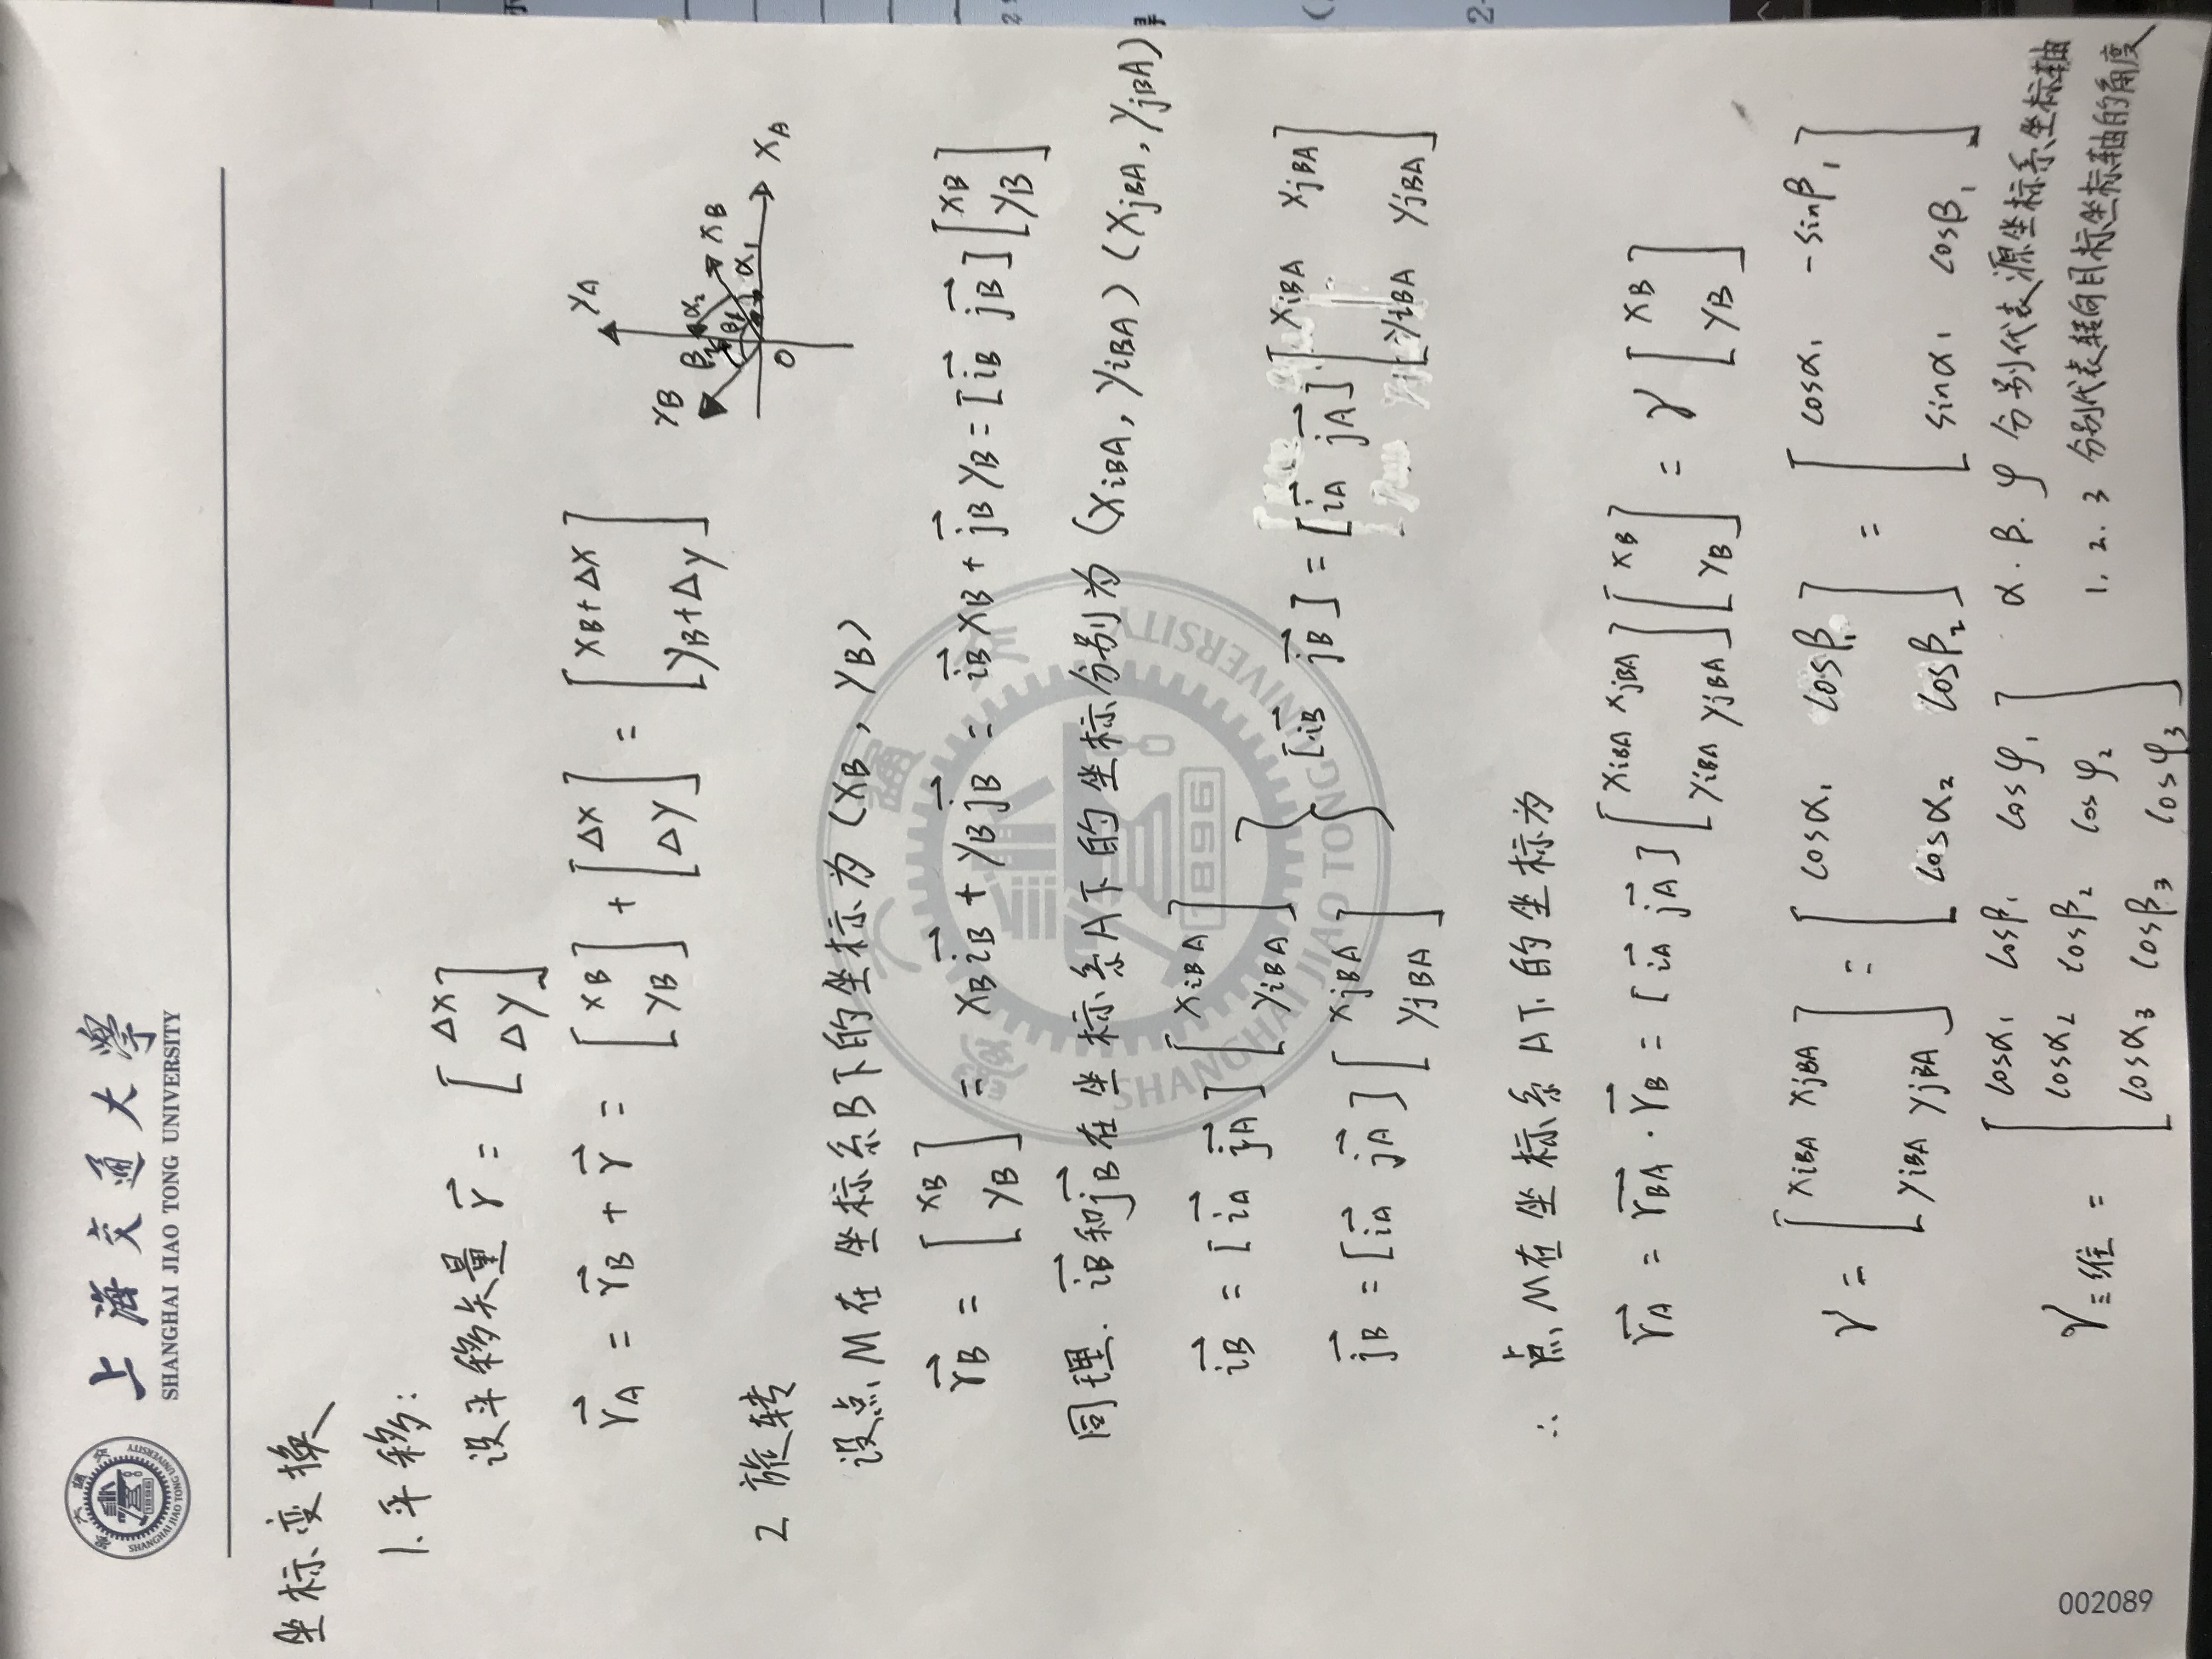 上海交通大學
SHANGHAI JIAO TONG UNIVERSITY
坐标变换
1. 平移:
设平移矢量 \vec{r} = [ΔX ; ΔY]
\vec{r_A} = \vec{r_B} + \vec{r} = [X_B ; Y_B] + [ΔX ; ΔY] = [X_B+ΔX ; Y_B+Δy]
Y_A
Y_B β_2 α_2 X_B
β_1 α_1
O X_A
2 旋转
设点M在坐标系B下的坐标为(X_B, Y_B)
\vec{r_B} = [X_B ; Y_B] = X_B\vec{i_B} + Y_B\vec{j_B} = \vec{i_B}X_B + \vec{j_B}Y_B = [\vec{i_B} \vec{j_B}][X_B ; Y_B]
同理. \vec{i_B}和\vec{j_B}在坐标系A下的坐标分别为(X_{iBA}, Y_{iBA})(X_{jBA}, Y_{jBA})
\vec{i_B} = [\vec{i_A} \vec{j_A}][X_{iBA} ; Y_{iBA}]
\vec{j_B} = [\vec{i_A} \vec{j_A}][X_{jBA} ; Y_{jBA}]
} [\vec{i_B} \vec{j_B}] = [\vec{i_A} \vec{j_A}][X_{iBA} X_{jBA} ; Y_{iBA} Y_{jBA}]
∴ 点M在坐标系A下的坐标为
\vec{r_A} = \vec{r_{BA}} · \vec{r_B} = [\vec{i_A} \vec{j_A}][X_{iBA} X_{jBA} ; Y_{iBA} Y_{jBA}][X_B ; Y_B] = γ[X_B ; Y_B]
γ = [X_{iBA} X_{jBA} ; Y_{iBA} Y_{jBA}] = [cosα_1 cosβ_1 ; cosα_2 cosβ_2] = [cosα_1 -sinβ_1 ; sinα_1 cosβ_1]
γ_{三维} = [cosα_1 cosβ_1 cosφ_1 ; cosα_2 cosβ_2 cosφ_2 ; cosα_3 cosβ_3 cosφ_3]
α. β. φ 分别代表源坐标系坐标轴
1. 2. 3 分别代表转向目标坐标轴的角度
002089
SHANGHAI JIAO TONG UNIVERSITY
1896